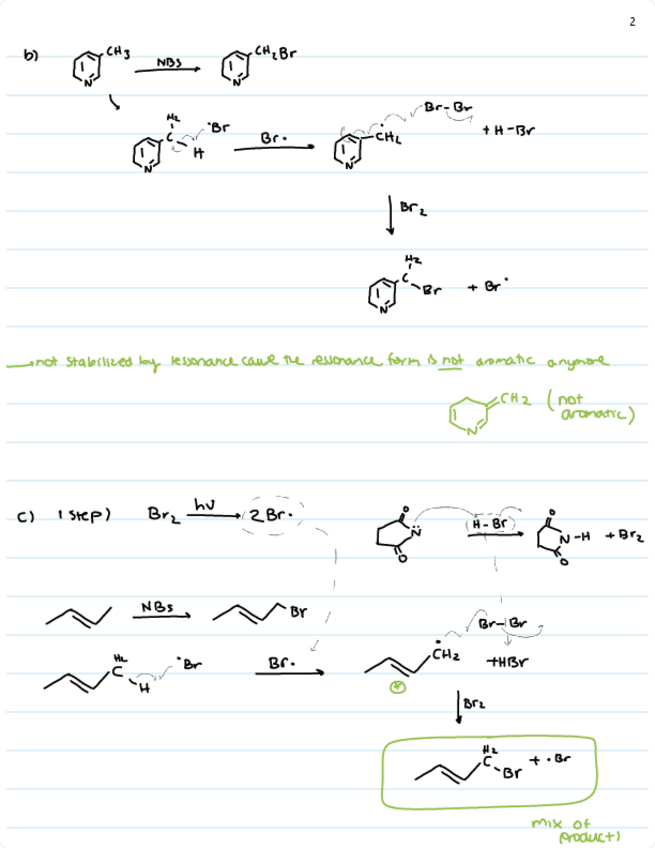 2
b) CH3 NBS CH2Br
N N
H2 C H •Br Br• •CH2 Br-Br + H-Br
N N
Br2
H2 C Br + Br•
N
→ not stabilized by ressonance cause the ressonance form is not aromatic anymore
CH2 (not aromatic)
N
c) 1 step) Br2 hν 2Br• O N: O H-Br O N-H O + Br2
NBS Br
H2 C H •Br Br• •CH2 Br-Br +HBr
Br2
H2 C Br + •Br
mix of
product 1